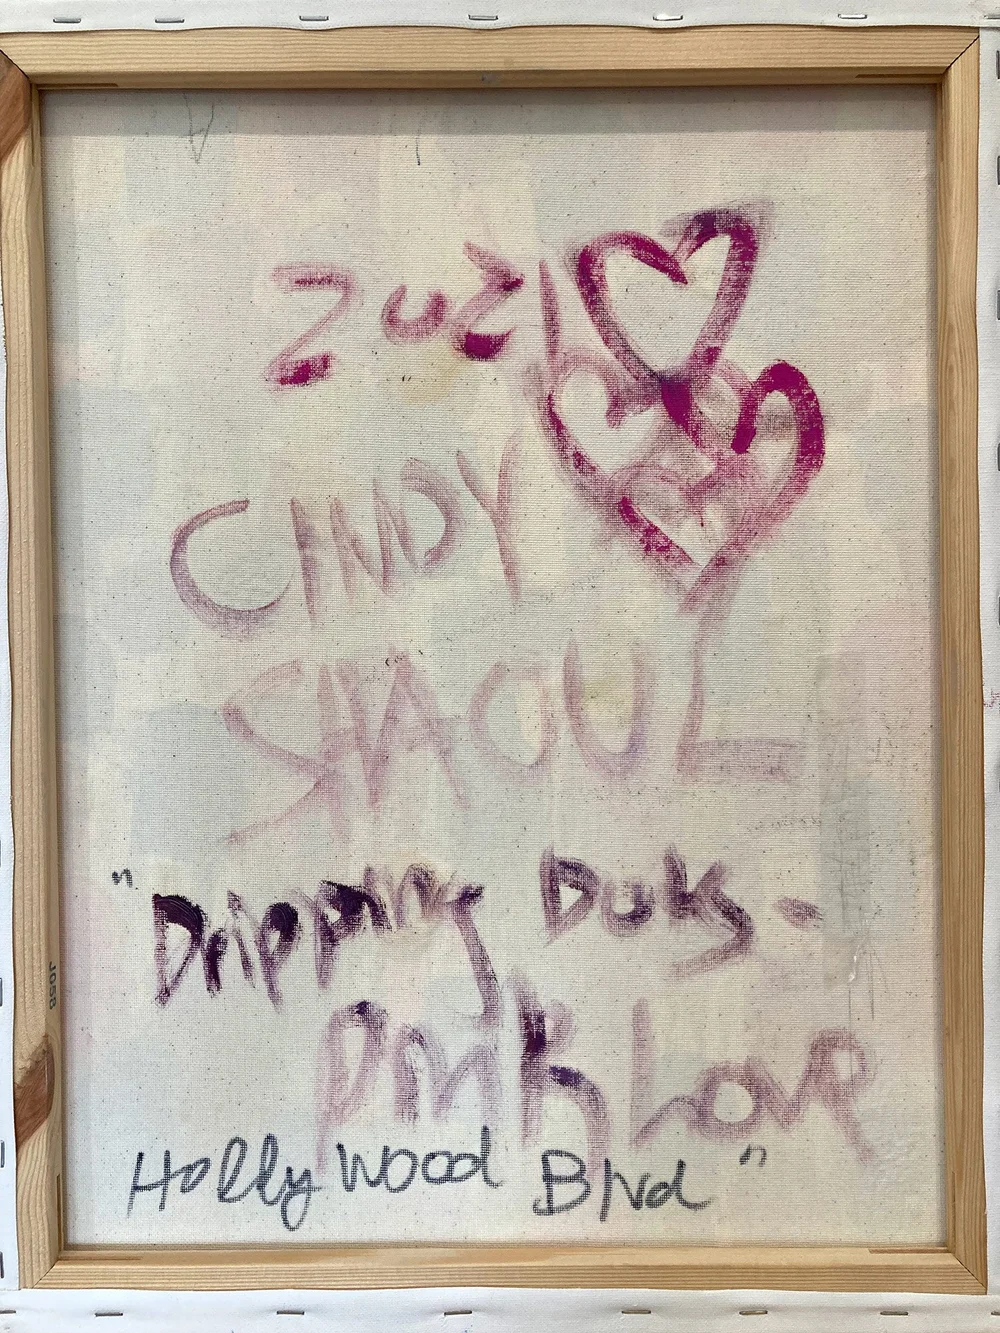 CINDY
SHAOUL
"Dripping Dots -
Pink Love
Hollywood Blvd"
JOSB